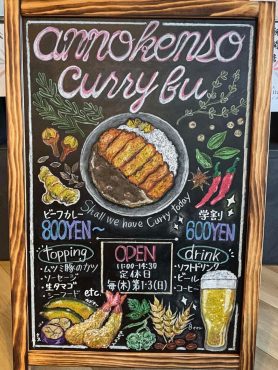 annokenso
curry bu
Shall we have Curry today
ビーフカレー
800YEN～
学割
600YEN
topping
・ムツミ豚のカツ
・ソーセージ
・生タマゴ
・シーフード etc
OPEN
11:00-14:30
定休日
毎(木)第1・3(日)
drink
・ソフトドリンク
・ビール
・コーヒー